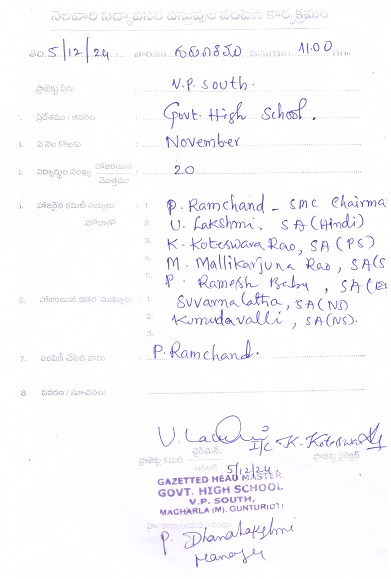 నెలవారి విద్యావసర వస్తువుల పంపిణి కార్యక్రమం
తేది. 5/12/24 వారము గురువారము సమయం. 11.00 గం
ప్రాజెక్టు పేరు N.P. South.
ప్రదేశము / ఆవరణ Govt. High School.
ఏ నెల కొఱకు November
విద్యార్థుల సంఖ్య హాజరయిన
మొత్తము 20
హాజరైన కమిటీ సభ్యులు 1. P. Ramchand - SMC Chairma
2. U. Lakshmi, SA (Hindi)
3. K. Koteswara Rao, SA (PS)
4. M. Mallikarjuna Rao, SA (S
5. P. Ramesh Babu, SA (E
6. హాజరయిన ఇతర ముఖ్యులు 1. Suvarnalatha, SA (NS)
2. Kumudavalli, SA (NS).
3.
7. పంపిణీ చేసిన వారు P. Ramchand.
8. వివరణ / సూచనలు
U. I/c K. Koteswara
ప్రాజెక్టు కమిటీ చైర్‌మెన్.
5/12/24
GAZETTED HEAD MASTER
GOVT. HIGH SCHOOL
V.P. SOUTH,
MACHARLA (M), GUNTUR(DT)
P. Dhanalakshmi
Manager